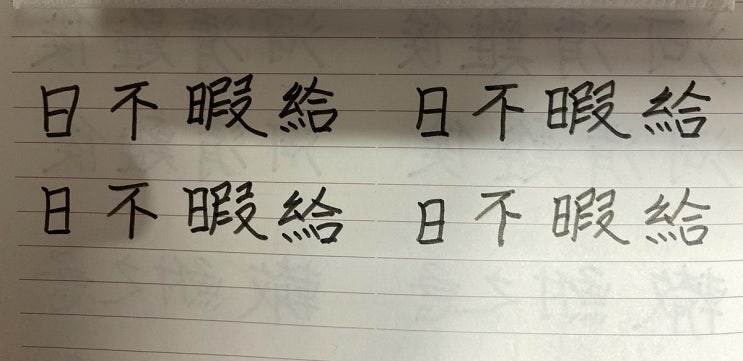 日不暇給 日不暇給
日不暇給 日不暇給